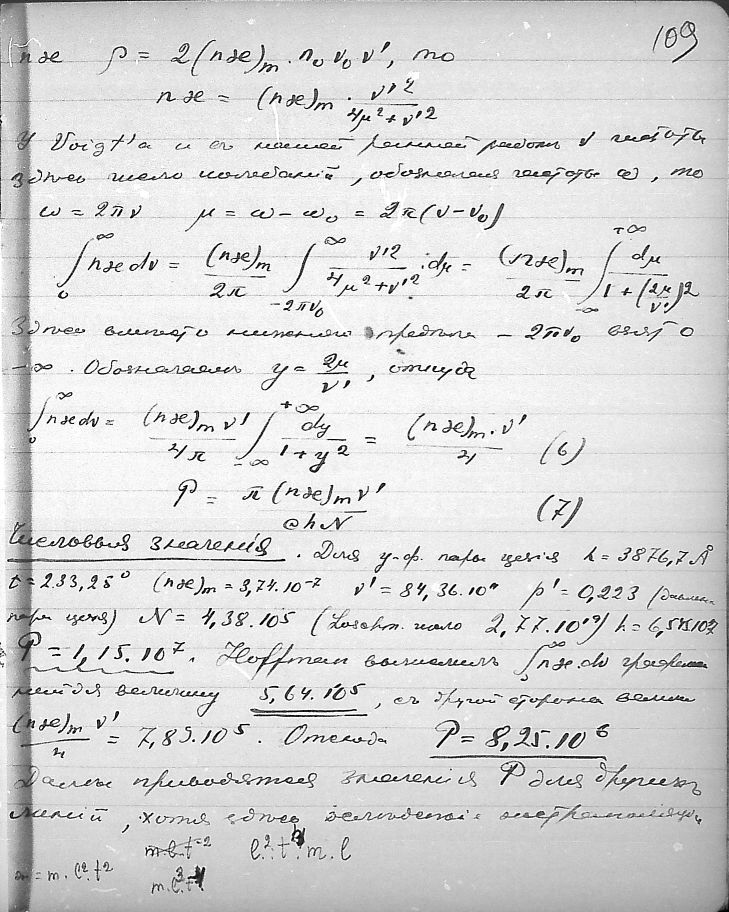 109
nϰ ρ = 2(nϰ)m · n₀ ν₀ ν', то
nϰ = (nϰ)m · ν'²/(4μ²+ν'²)
У Voigt'а и въ нашей ранней работѣ ν частота
здѣсь число колебаній, обозначая частоту ω, то
ω = 2πν μ = ω − ω₀ = 2π(ν−ν₀)
∫₀^∞ nϰ dν = (nϰ)m/2π ∫_{−2πν₀}^∞ ν'²/(4μ²+ν'²) · dμ = (nϰ)m/2π ∫_{−∞}^{+∞} dμ/(1+(2μ/ν')²)
Здѣсь вмѣсто нижняго предѣла − 2πν₀ взято
−∞. Обозначаемъ y = 2μ/ν', откуда
∫₀^∞ nϰ dν = (nϰ)m ν'/4π ∫_{−∞}^{+∞} dy/(1+y²) = (nϰ)m · ν'/4 (6)
P = π (nϰ)m ν'/ħN (7)
Числовыя значенія. Для у.ф. пары цезія λ = 3876,7 Å
t = 233,25° (nϰ)m = 3,74·10⁻⁷ ν' = 84,36·10 p' = 0,223 (давлен.
пара цезія) N = 4,38·10⁵ (Loschm. число 2,77·10¹⁹) h = 6,545·10
P = 1,15·10⁷. Hoffman вычислилъ ∫₀^∞ nϰ·dν графич
найдя величину 5,64·10⁵, съ другой стороны велич
(nϰ)m ν'/4 = 7,89·10⁵. Отсюда P = 8,25·10⁶
Далѣе приводятся значенія P для другихъ
линій, хотя здѣсь
m·l·t⁻² l²·t·m·l
= m·l²·t² m·l³·t